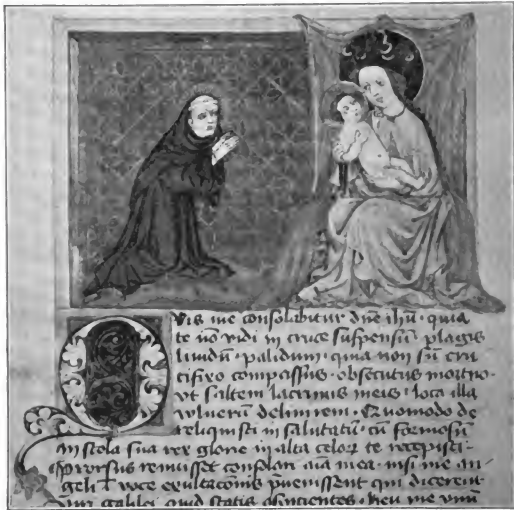 Quis me consolabitur dñe ihũ · quia
te nõ vidi in cruce suspensũ · plagis
liuidũ · palidum · quia non sũ cru
cifixo compassus · obsecutus mortuo ·
vt saltem lacrimis meis · loca illa
vlnerũ delinirem · Quomodo de
reliquisti me salutatũ cũ formosus
in stola sua rex glorie in alta celoꝝ te recepisti ·
prorsus renuisset consolari aĩa mea · nisi me an
geli voce exultacõnis p̃uenissent qui dicerent
viri galilei quid statis aspicientes · heu me